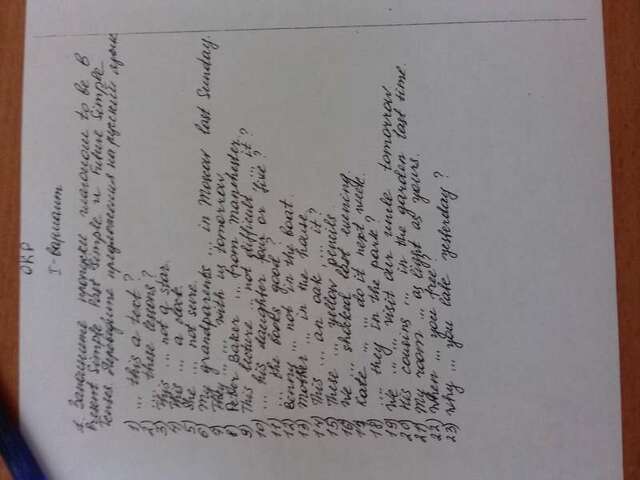 ОКР
I-вариант
1. Заполните пропуски глаголом to be в
Present Simple, Past Simple и Future Simple
Tenses. Переведите предложения на русский язык.
1) ... this a text?
2) .... these lessons?
3) This ... not a star.
4) This ... a clock.
5) She ... not sure.
6) My grandparents ... in Moscow last Sunday.
7) They ... ... with us tomorrow.
8) Peter Baker ... from Manchester.
9) This lecture ... not difficult, ... it?
10) ... his daughter four or five?
11) ... the books good?
12) Benny ... not in the boat.
13) Mother ... in the house.
14) This ... an oak, ... it?
15) These ... yellow pencils.
16) We ... shocked last evening.
17) Kate ... ... do it next week.
18) .... they in the park?
19) We ... ... visit our uncle tomorrow
20) His cousins ... in the garden last time.
21) My room ... as light as yours.
22) When ... you free?
23) Why ... you late yesterday?